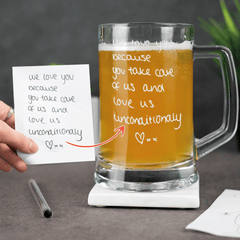 we love you
because
you take care
of us and
love us
unconditionally
love you
because
you take care
of us and
love us
unconditionally